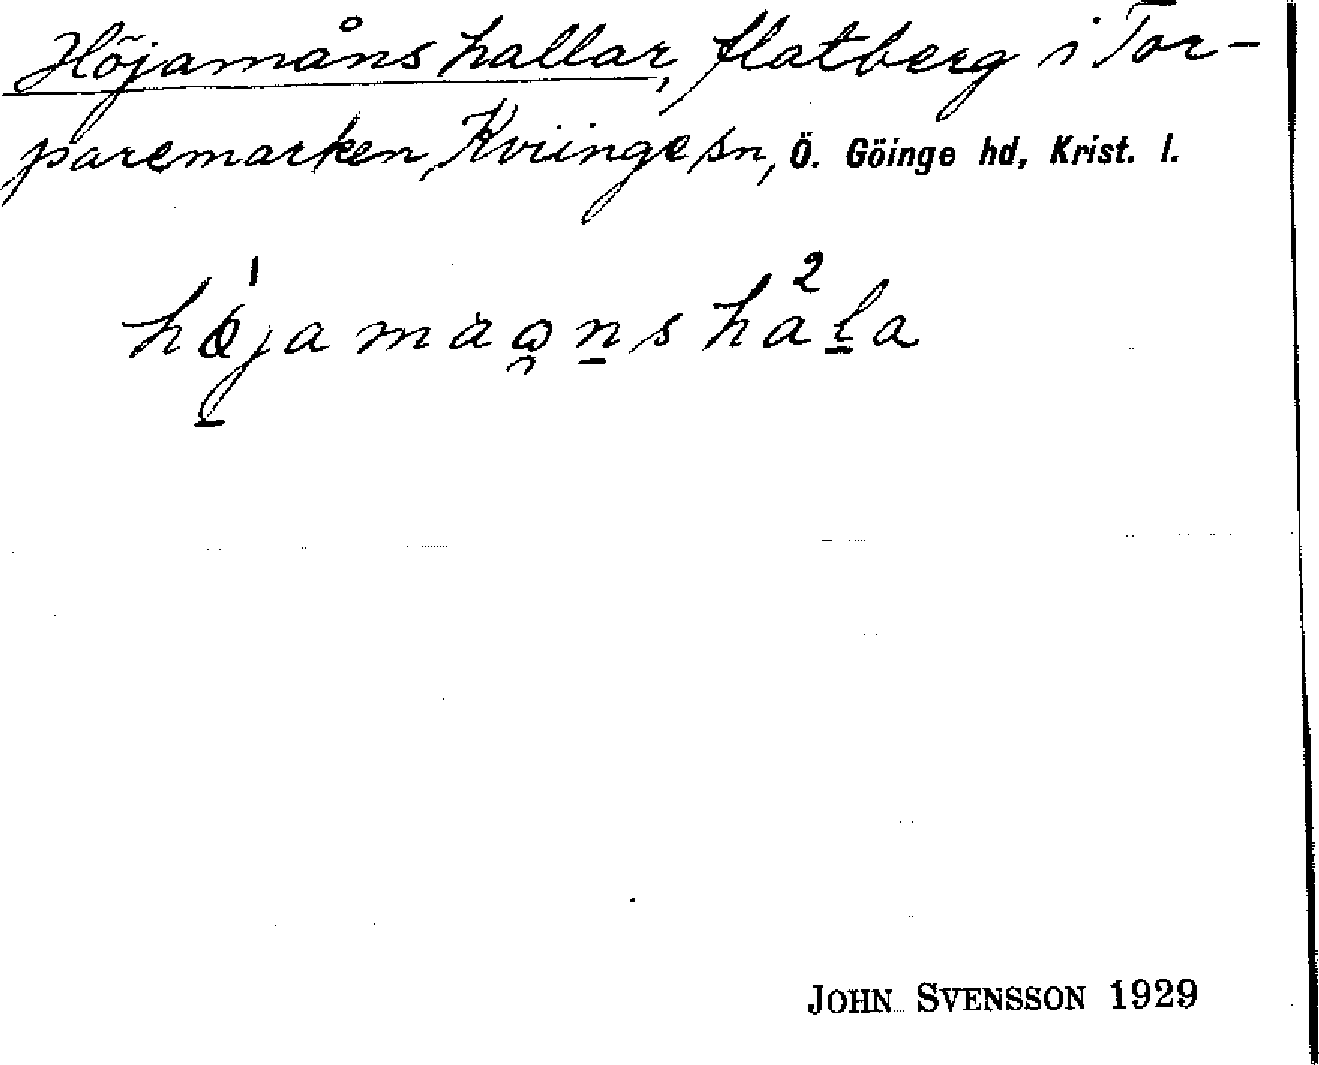 Höjamåns hallar, flatberg i Tor-
paremarken, Kviinge sn, Ö. Göinge hd, Krist. l.
hö̱ja mao̯ṉs haḻa
1 2
JOHN SVENSSON 1929